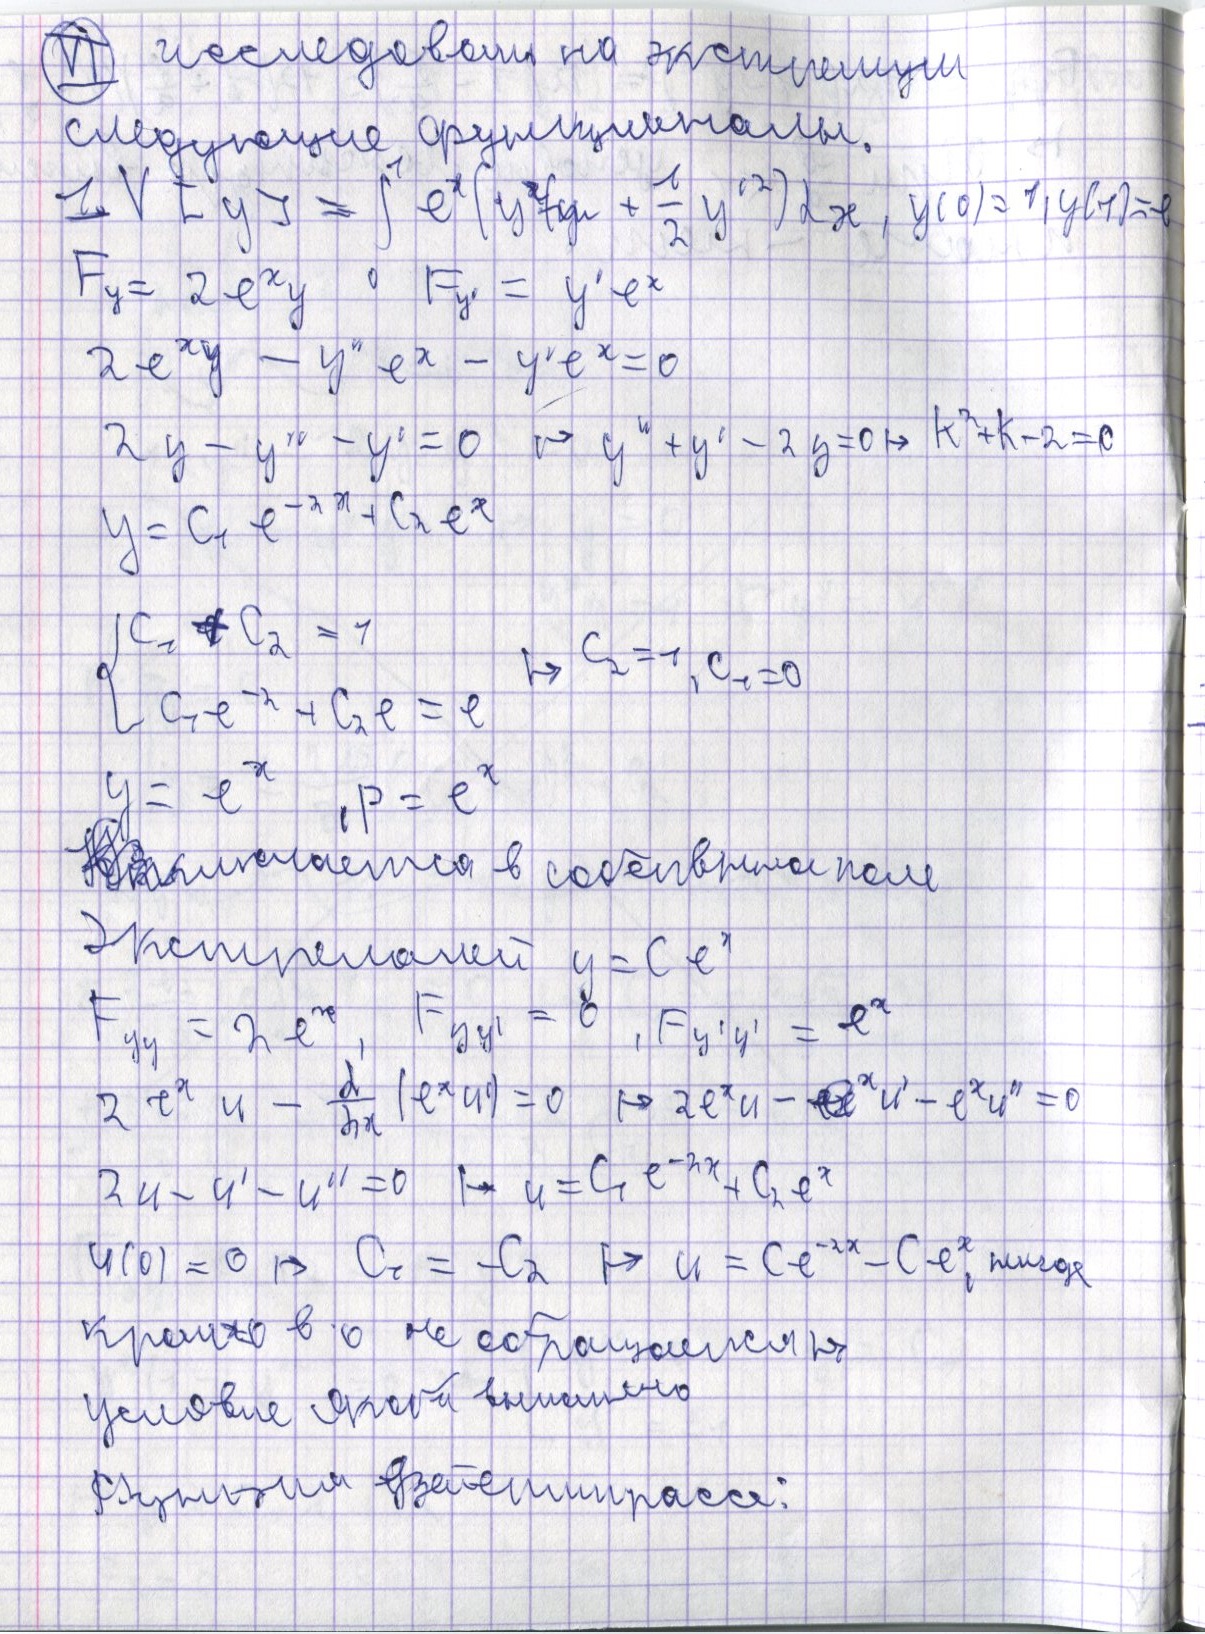 VI исследовать на экстремум
следующие функционалы.
1. V[y] = ∫¹ eˣ(y² + 1/2 y'²)dx, y(0)=1, y(1)=e
F_y = 2eˣy, F_y' = y'eˣ
2eˣy − y''eˣ − y'eˣ = 0
2y − y'' − y' = 0 ↦ y'' + y' − 2y = 0 ↦ k² + k − 2 = 0
y = C₁e⁻²ˣ + C₂eˣ
{ C₁ + C₂ = 1
C₁e⁻² + C₂e = e ↦ C₂ = 1, C₁ = 0
y = eˣ, p = eˣ
включается в собственное поле
Экстремалей y = Ceˣ
F_yy = 2eˣ, F_yy' = 0, F_y'y' = eˣ
2eˣu − d/dx(eˣu') = 0 ↦ 2eˣu − eˣu' − eˣu'' = 0
2u − u' − u'' = 0 ↦ u = C₁e⁻²ˣ + C₂eˣ
u(0) = 0 ↦ C₁ = −C₂ ↦ u = Ce⁻²ˣ − Ceˣ, нигде
кроме 0 в 0 не обращается ↦
условие Якоби выполнено
Функция Вейерштрасса: